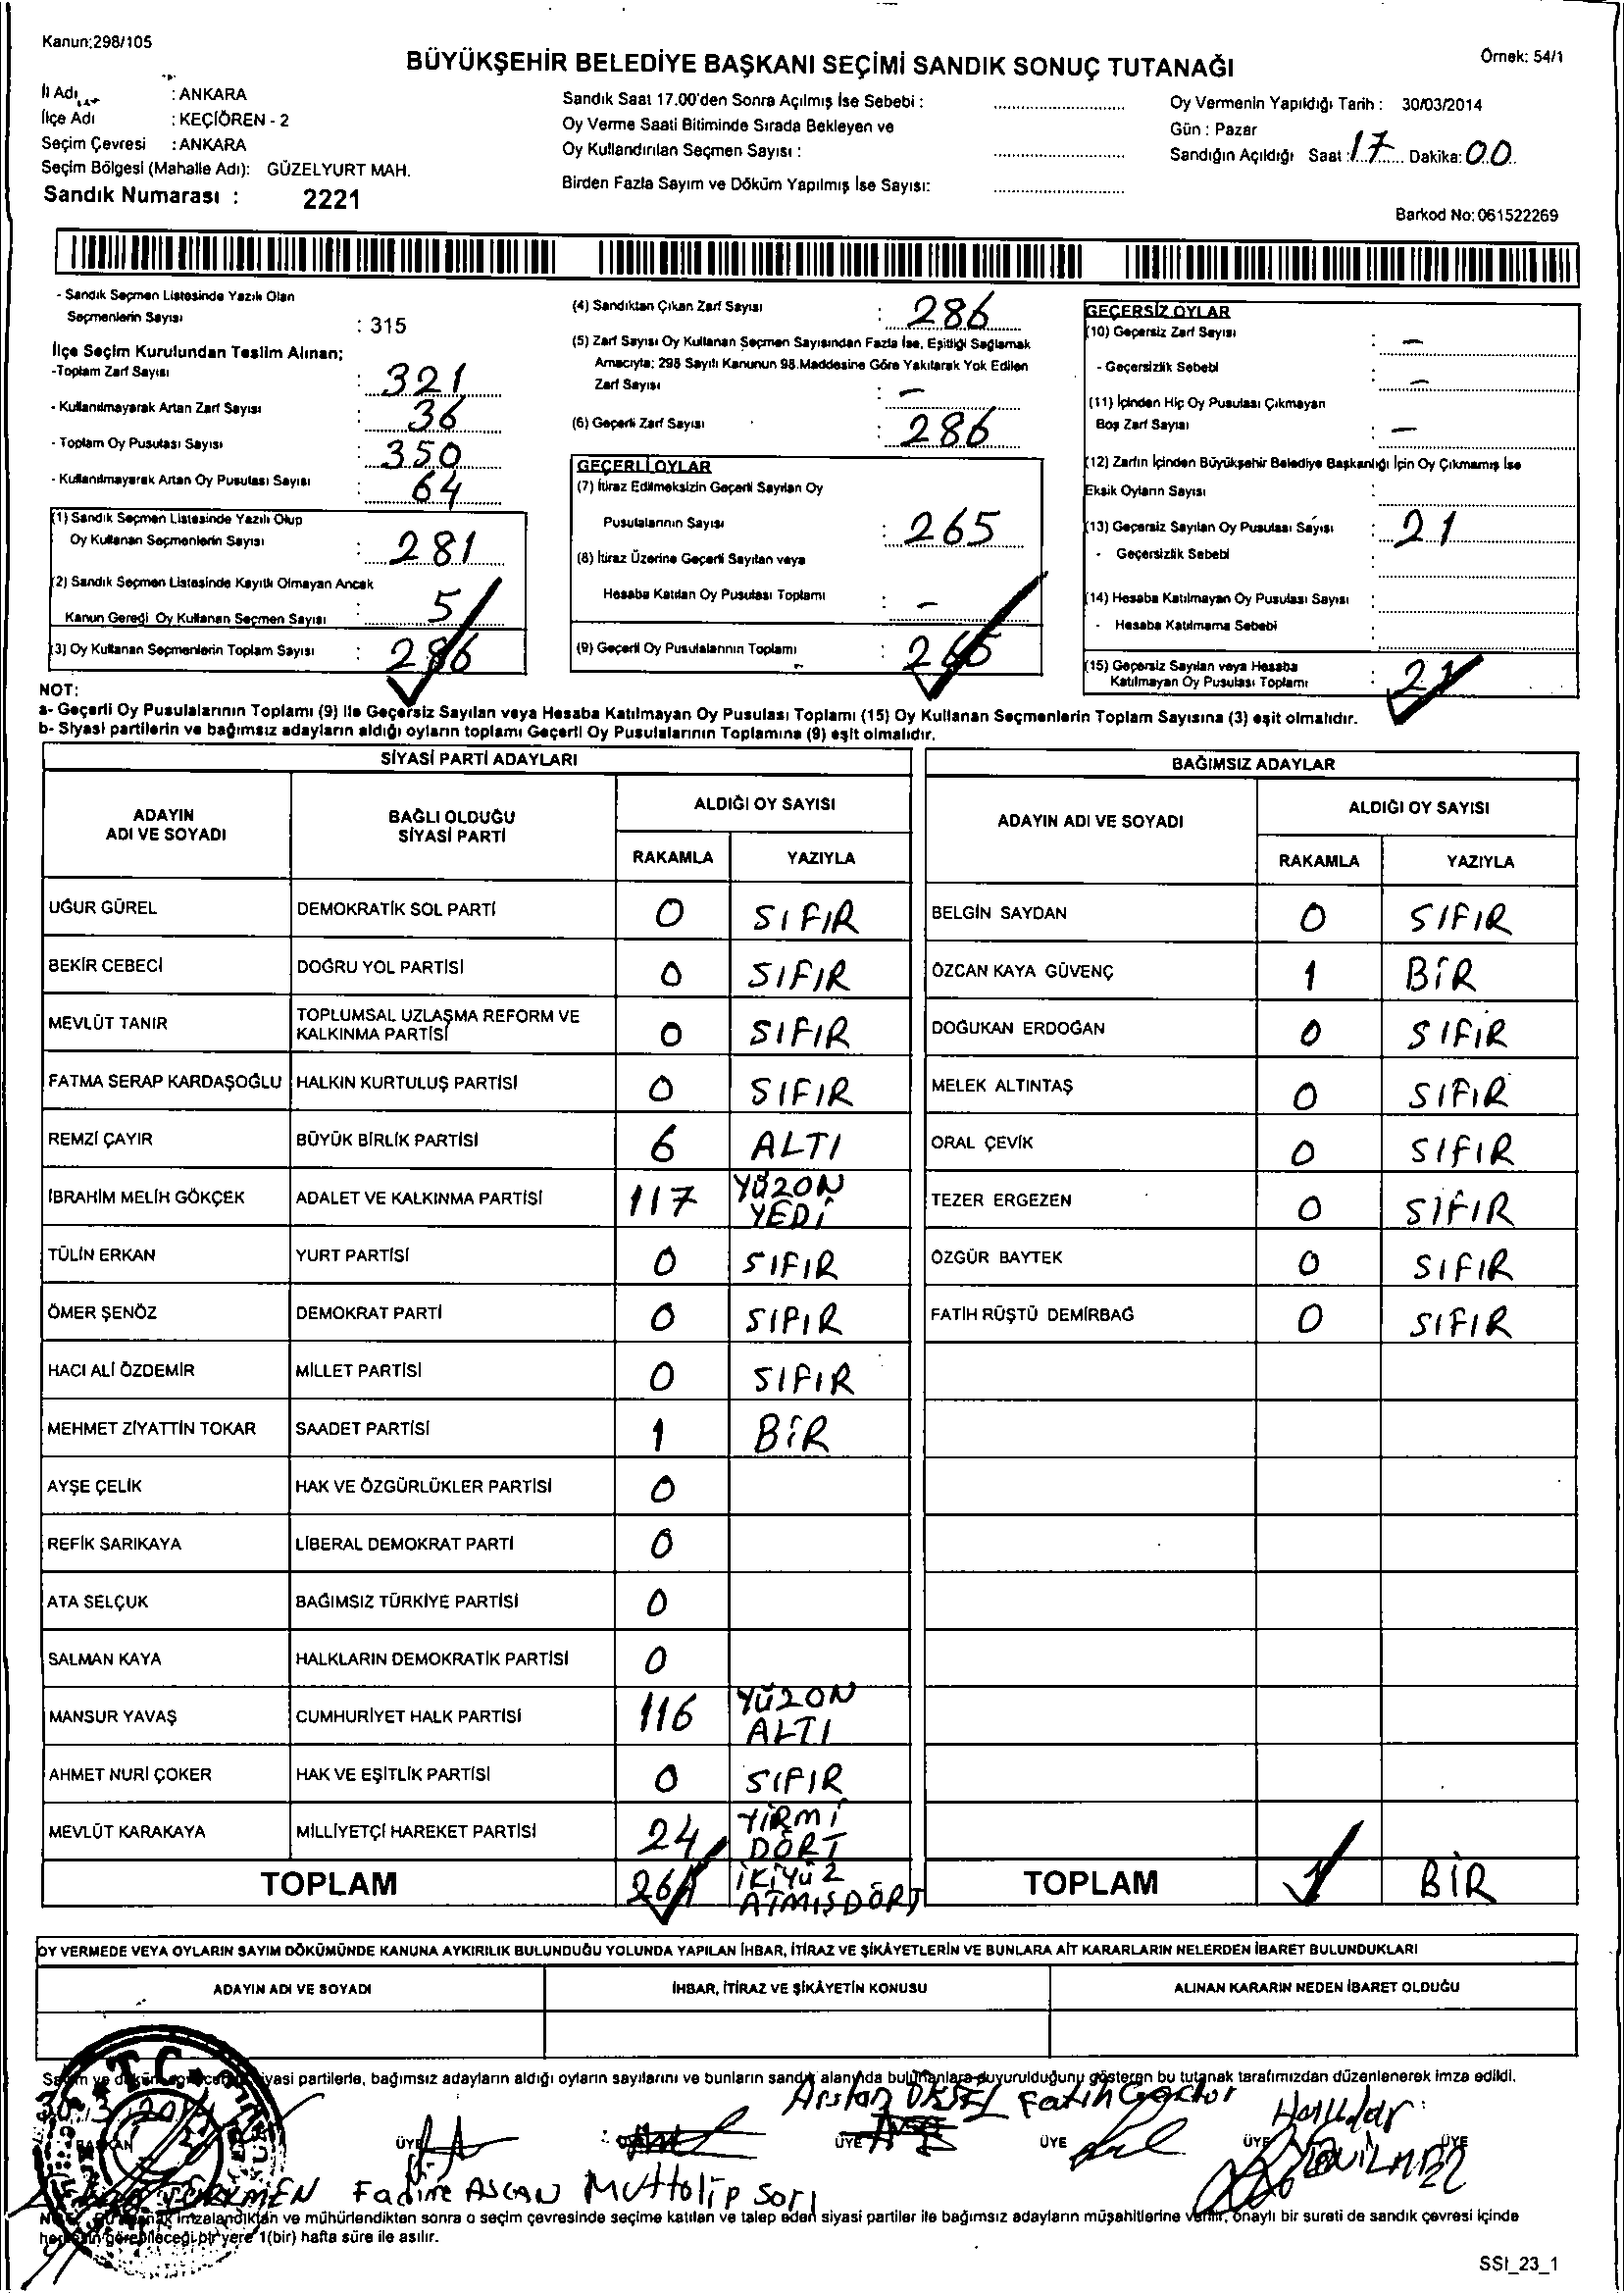 Kanun:298/105
Örnek: 54/1
BÜYÜKŞEHİR BELEDİYE BAŞKANI SEÇİMİ SANDIK SONUÇ TUTANAĞI
İl Adı : ANKARA
İlçe Adı : KEÇİÖREN - 2
Seçim Çevresi : ANKARA
Seçim Bölgesi (Mahalle Adı): GÜZELYURT MAH.
Sandık Numarası : 2221
Sandık Saat 17.00'den Sonra Açılmış İse Sebebi :
Oy Verme Saati Bitiminde Sırada Bekleyen ve
Oy Kullandırılan Seçmen Sayısı :
Birden Fazla Sayım ve Döküm Yapılmış İse Sayısı:
Oy Vermenin Yapıldığı Tarih : 30/03/2014
Gün : Pazar
Sandığın Açıldığı Saat : 17 Dakika: 00
Barkod No: 061522269
- Sandık Seçmen Listesinde Yazılı Olan
Seçmenlerin Sayısı : 315
İlçe Seçim Kurulundan Teslim Alınan;
-Toplam Zarf Sayısı : 321
- Kullanılmayarak Artan Zarf Sayısı : 36
- Toplam Oy Pusulası Sayısı : 350
- Kullanılmayarak Artan Oy Pusulası Sayısı : 64
(1) Sandık Seçmen Listesinde Yazılı Olup
Oy Kullanan Seçmenlerin Sayısı : 281
(2) Sandık Seçmen Listesinde Kayıtlı Olmayan Ancak
Kanun Gereği Oy Kullanan Seçmen Sayısı : 5
(3) Oy Kullanan Seçmenlerin Toplam Sayısı : 286
(4) Sandıktan Çıkan Zarf Sayısı : 286
(5) Zarf Sayısı Oy Kullanan Seçmen Sayısından Fazla İse, Eşitliği Sağlamak
Amacıyla; 298 Sayılı Kanunun 98.Maddesine Göre Yakılarak Yok Edilen
Zarf Sayısı : -
(6) Geçerli Zarf Sayısı : 286
GEÇERLİ OYLAR
(7) İtiraz Edilmeksizin Geçerli Sayılan Oy
Pusulalarının Sayısı : 265
(8) İtiraz Üzerine Geçerli Sayılan veya
Hesaba Katılan Oy Pusulası Toplamı : -
(9) Geçerli Oy Pusulalarının Toplamı : 265
GEÇERSİZ OYLAR
(10) Geçersiz Zarf Sayısı : -
- Geçersizlik Sebebi : -
(11) İçinden Hiç Oy Pusulası Çıkmayan
Boş Zarf Sayısı : -
(12) Zarfın İçinden Büyükşehir Belediye Başkanlığı İçin Oy Çıkmamış İse
Eksik Oyların Sayısı :
(13) Geçersiz Sayılan Oy Pusulası Sayısı : 21
- Geçersizlik Sebebi :
(14) Hesaba Katılmayan Oy Pusulası Sayısı :
- Hesaba Katılmama Sebebi :
(15) Geçersiz Sayılan veya Hesaba
Katılmayan Oy Pusulası Toplamı : 21
NOT:
a- Geçerli Oy Pusulalarının Toplamı (9) İle Geçersiz Sayılan veya Hesaba Katılmayan Oy Pusulası Toplamı (15) Oy Kullanan Seçmenlerin Toplam Sayısına (3) eşit olmalıdır.
b- Siyasi partilerin ve bağımsız adayların aldığı oyların toplamı Geçerli Oy Pusulalarının Toplamına (9) eşit olmalıdır.
SİYASİ PARTİ ADAYLARI
ADAYIN ADI VE SOYADI BAĞLI OLDUĞU SİYASİ PARTİ ALDIĞI OY SAYISI
RAKAMLA YAZIYLA
UĞUR GÜREL DEMOKRATİK SOL PARTİ 0 SIFIR
BEKİR CEBECİ DOĞRU YOL PARTİSİ 0 SIFIR
MEVLÜT TANIR TOPLUMSAL UZLAŞMA REFORM VE KALKINMA PARTİSİ 0 SIFIR
FATMA SERAP KARDAŞOĞLU HALKIN KURTULUŞ PARTİSİ 0 SIFIR
REMZİ ÇAYIR BÜYÜK BİRLİK PARTİSİ 6 ALTI
İBRAHİM MELİH GÖKÇEK ADALET VE KALKINMA PARTİSİ 117 YÜZON YEDİ
TÜLİN ERKAN YURT PARTİSİ 0 SIFIR
ÖMER ŞENÖZ DEMOKRAT PARTİ 0 SIFIR
HACI ALİ ÖZDEMİR MİLLET PARTİSİ 0 SIFIR
MEHMET ZİYATTİN TOKAR SAADET PARTİSİ 1 BİR
AYŞE ÇELİK HAK VE ÖZGÜRLÜKLER PARTİSİ 0
REFİK SARIKAYA LİBERAL DEMOKRAT PARTİ 0
ATA SELÇUK BAĞIMSIZ TÜRKİYE PARTİSİ 0
SALMAN KAYA HALKLARIN DEMOKRATİK PARTİSİ 0
MANSUR YAVAŞ CUMHURİYET HALK PARTİSİ 116 YÜZON ALTI
AHMET NURİ ÇOKER HAK VE EŞİTLİK PARTİSİ 0 SIFIR
MEVLÜT KARAKAYA MİLLİYETÇİ HAREKET PARTİSİ 24 YİRMİ DÖRT
TOPLAM 264 İKİYÜZ ATMIŞDÖRT
BAĞIMSIZ ADAYLAR
ADAYIN ADI VE SOYADI ALDIĞI OY SAYISI
RAKAMLA YAZIYLA
BELGİN SAYDAN 0 SIFIR
ÖZCAN KAYA GÜVENÇ 1 BİR
DOĞUKAN ERDOĞAN 0 SIFIR
MELEK ALTINTAŞ 0 SIFIR
ORAL ÇEVİK 0 SIFIR
TEZER ERGEZEN 0 SIFIR
ÖZGÜR BAYTEK 0 SIFIR
FATİH RÜŞTÜ DEMİRBAĞ 0 SIFIR
TOPLAM 1 BİR
OY VERMEDE VEYA OYLARIN SAYIM DÖKÜMÜNDE KANUNA AYKIRILIK BULUNDUĞU YOLUNDA YAPILAN İHBAR, İTİRAZ VE ŞİKÂYETLERİN VE BUNLARA AİT KARARLARIN NELERDEN İBARET BULUNDUKLARI
ADAYIN ADI VE SOYADI İHBAR, İTİRAZ VE ŞİKÂYETİN KONUSU ALINAN KARARIN NEDEN İBARET OLDUĞU
siyasi partilerle, bağımsız adayların aldığı oyların sayılarını ve bunların sandık alanında bulunanlara duyurulduğunu gösteren bu tutanak tarafımızdan düzenlenerek imza edildi.
T.C.
Arslan Fatih
BAŞKAN ÜYE ÜYE ÜYE ÜYE
Fadime ASLAN Muttalip Sarı
imzalandıktan ve mühürlendikten sonra o seçim çevresinde seçime katılan ve talep eden siyasi partiler ile bağımsız adayların müşahitlerine verilir, onaylı bir sureti de sandık çevresi içinde
herkesin görebileceği bir yere 1(bir) hafta süre ile asılır.
SSI_23_1